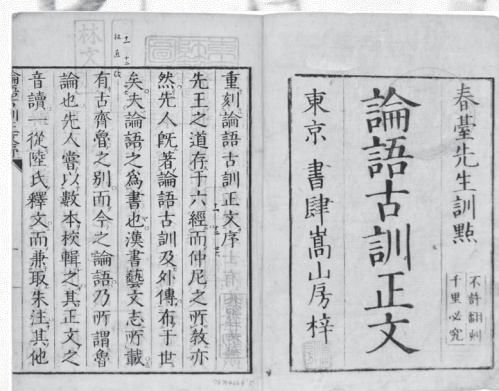 春臺先生訓點
論語古訓正文
不許翻刻
千里必究
東京 書肆嵩山房梓
重刻論語古訓正文序
先王之道存于六經而仲尼之所教亦
然先人旣著論語古訓及外傳布于世
矣夫論語之爲書也漢書藝文志所載
有古齊魯之別而今之論語乃所謂魯
論也先人嘗以數本挍輯之其正文之
音讀一從陸氏釋文而兼取朱注其他